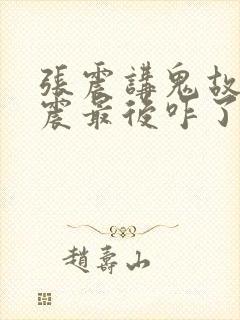 張震講鬼故
震最後咋了
趙壽山